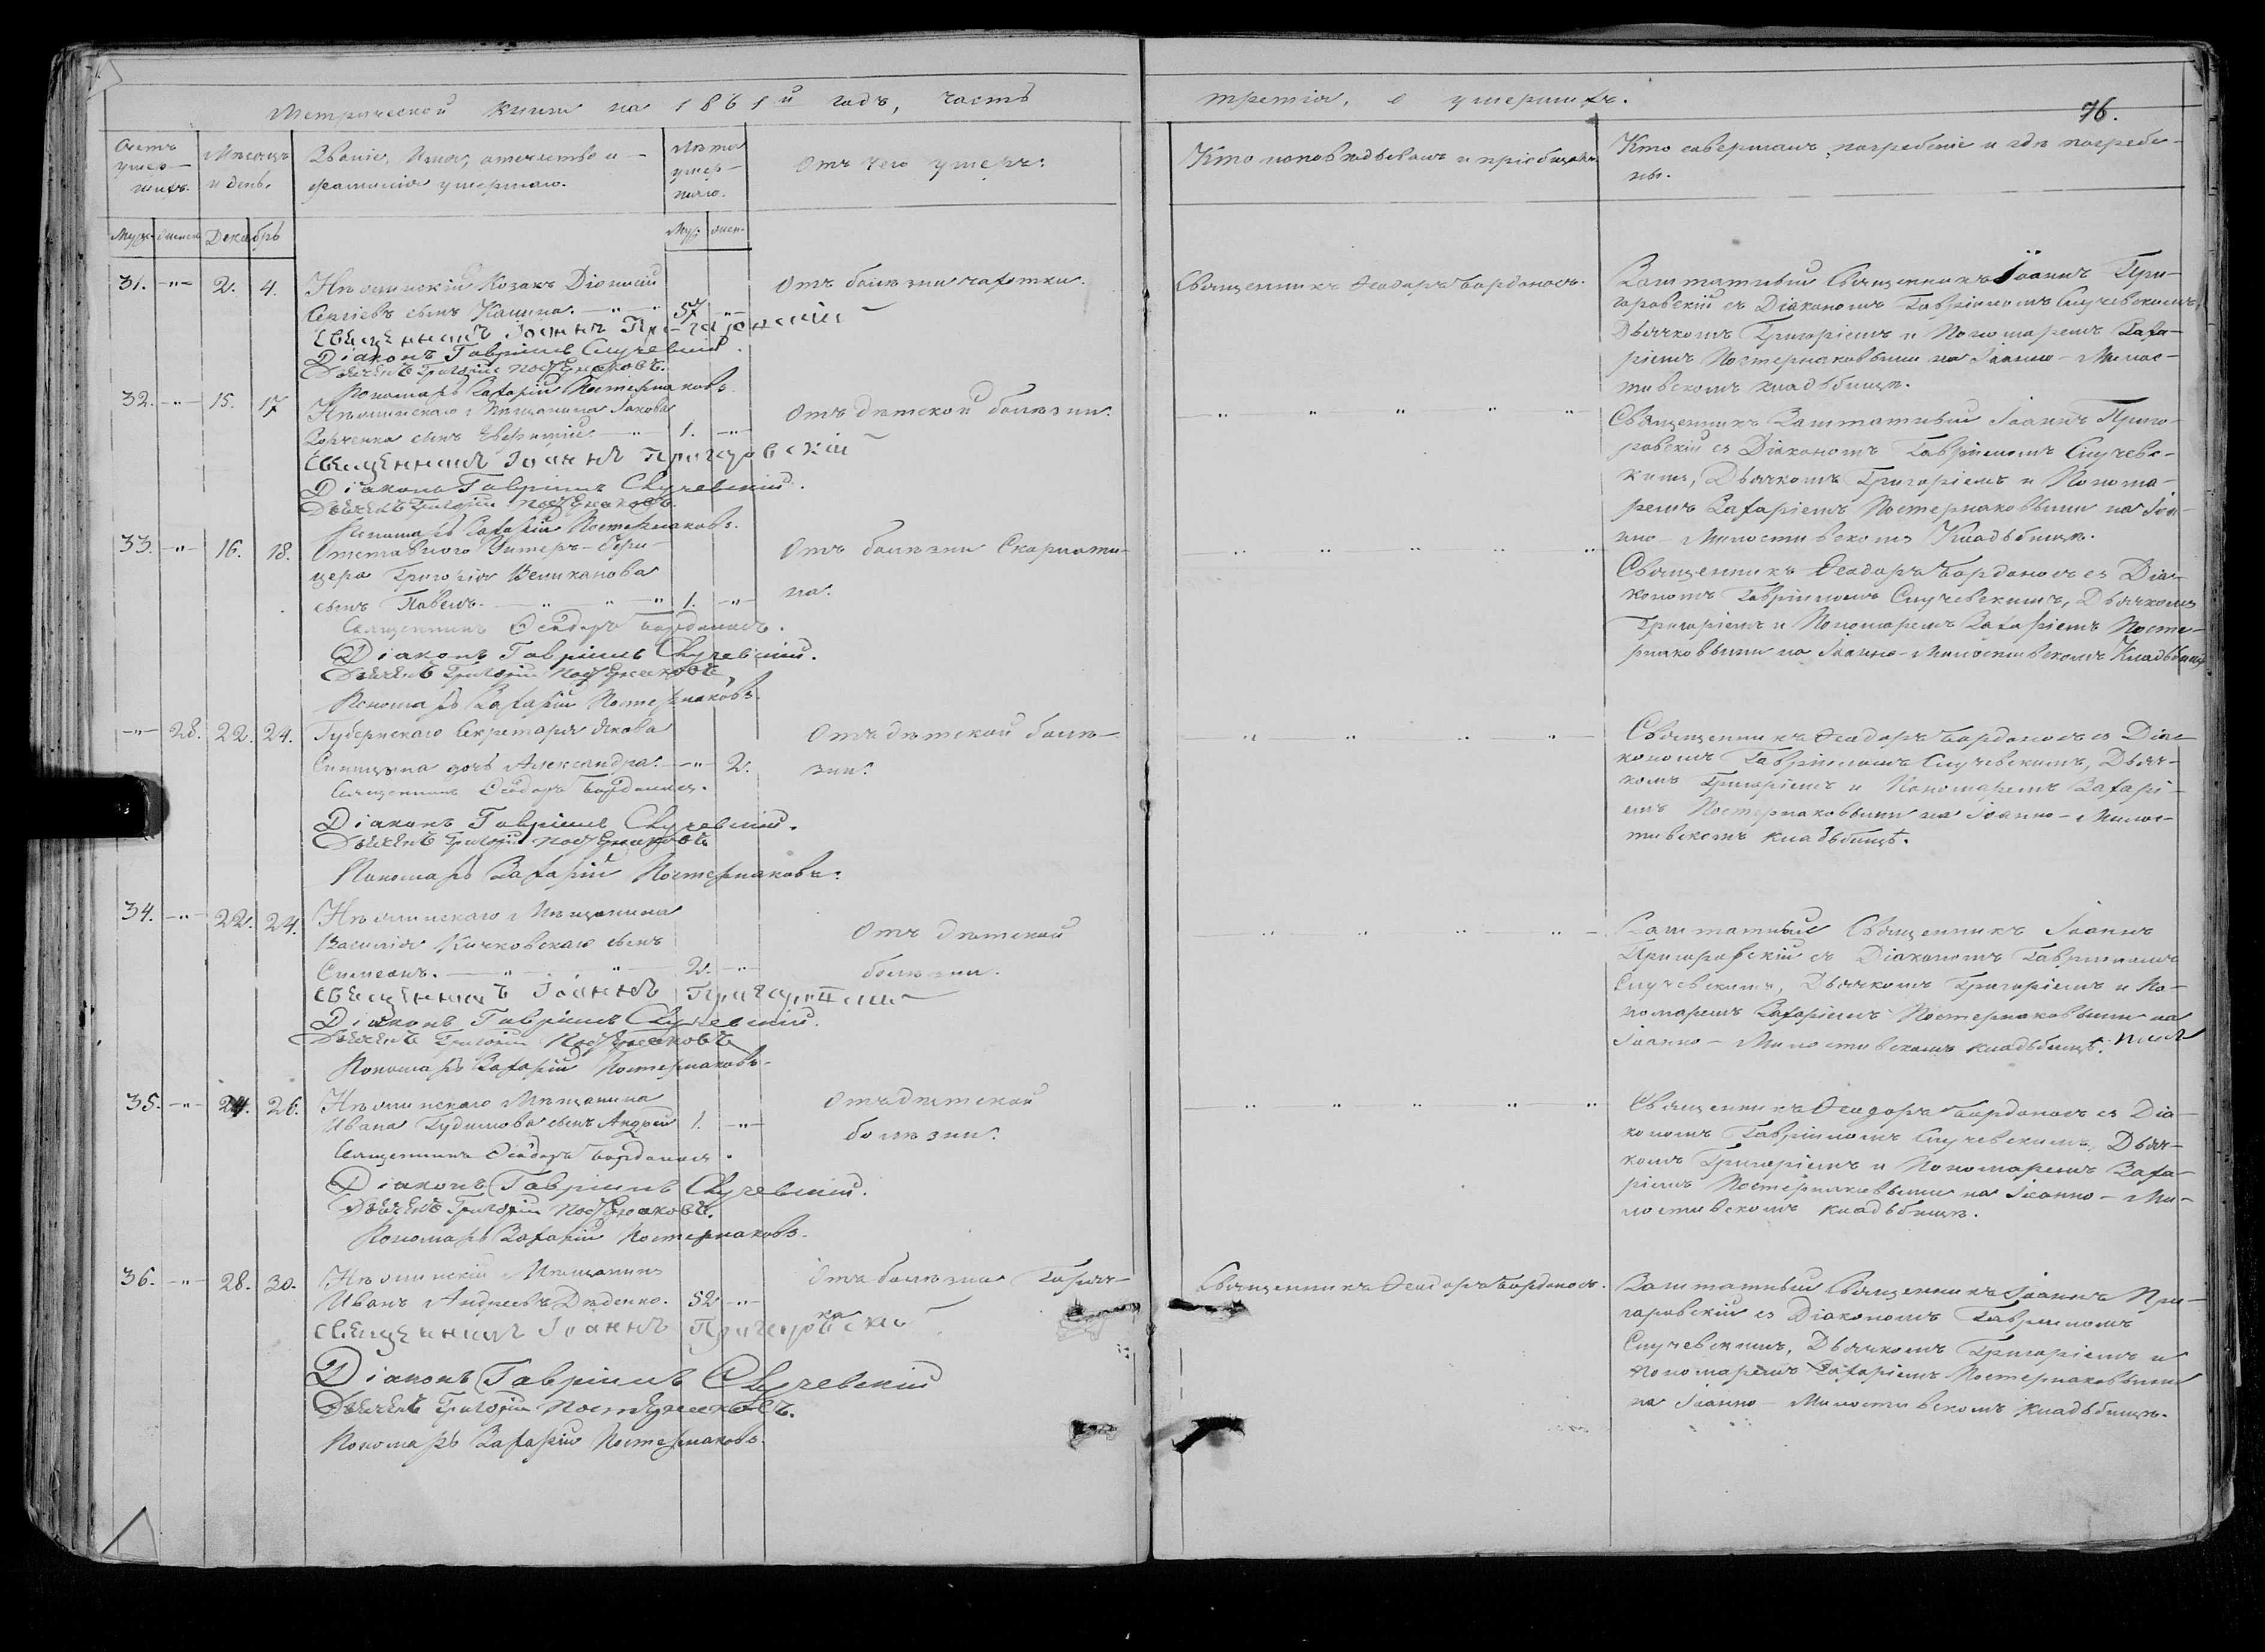 Метрической книги на 1861й годъ, часть
третія, о умершихъ.
76.
Счетъ умер-
шихъ.
Мѣсяцъ
и день.
Званіе, Имя, отечество и
фамилія умершаго.
Лѣта
умер-
шаго.
Отъ чего умеръ.
Кто исповѣдывалъ и пріобщалъ.
Кто совершалъ погребеніе и гдѣ погребе-
ны.
Муж. Женск. Декабрь
Муж. Жен.
31. -"- 2. 4. Нѣжинскій Козакъ Діонисій
Сергіевъ сынъ 57 -"-
Отъ болѣзни чахотки.
Священникъ Ѳеодоръ Бордоносъ.
Священникъ Іоаннъ Пригоровскій
Діаконъ Гавріилъ Случевскій.
Дьячекъ Григорій Постернаковъ.
Пономарь Захарій Постернаковъ.
Заштатный Священникъ Іоаннъ При-
горовскій съ Діакономъ Гавріиломъ Случевскимъ,
Дьячкомъ Григоріемъ и Пономаремъ Заха-
ріемъ Постернаковыми на Іоанно-Милос-
тивскомъ кладьбищѣ.
32. -"- 15. 17 Нѣжинскаго Мѣщанина Іакова
сынъ Евфимій. 1. -"-
Отъ дѣтской болѣзни.
Священникъ Іоаннъ Пригоровскій
Діаконъ Гавріилъ Случевскій.
Дьячекъ Григорій Постернаковъ.
Пономарь Захарій Постернаковъ.
Священникъ Заштатный Іоаннъ Приго-
ровскій съ Діакономъ Гавріиломъ Случевс-
кимъ, Дьячкомъ Григоріемъ и Понома-
ремъ Захаріемъ Постернаковыми на Іоа-
нно-Милостивскомъ Кладьбищѣ.
33. -"- 16. 18. Отставного Унтеръ-Офи-
цера Григорія Великанова
сынъ Павелъ. 1. -"-
Отъ болѣзни Скарлати-
на.
Священникъ Ѳеодоръ Бордоносъ.
Діаконъ Гавріилъ Случевскій.
Дьячекъ Григорій Постернаковъ
Пономарь Захарій Постернаковъ.
Священникъ Ѳеодоръ Бордоносъ съ Діа-
кономъ Гавріиломъ Случевскимъ, Дьячкомъ
Григоріемъ и Пономаремъ Захаріемъ Посте-
рнаковыми на Іоанно-Милостивскомъ Кладьбищѣ
-"- 28. 22. 24. Губернскаго Секретаря Якова
Синицына дочь Александра. -"- 2.
Отъ дѣтской болѣ-
зни.
Священникъ Ѳеодоръ Бордоносъ.
Діаконъ Гавріилъ Случевскій.
Дьячекъ Григорій Постернаковъ
Пономарь Захарій Постернаковъ.
Священникъ Ѳеодоръ Бордоносъ съ Діа-
кономъ Гавріиломъ Случевскимъ, Дьяч-
комъ Григоріемъ и Пономаремъ Захарі-
емъ Постернаковыми на Іоанно-Милос-
тивскомъ кладьбищѣ.
34. -"- 22. 24. Нѣжинскаго Мѣщанина
Василія Кичковскаго сынъ
Симеонъ. 2. -"-
Отъ дѣтской
болѣзни.
Священникъ Іоаннъ Пригоровскій
Діаконъ Гавріилъ Случевскій.
Дьячекъ Григорій Постернаковъ
Пономарь Захарій Постернаковъ.
Заштатный Священникъ Іоаннъ
Пригоровскій съ Діакономъ Гавріиломъ
Случевскимъ, Дьячкомъ Григоріемъ и По-
номаремъ Захаріемъ Постернаковыми на
Іоанно-Милостивскомъ кладьбищѣ.
35. -"- 24. 26. Нѣжинскаго Мѣщанина
Ивана сынъ Андрей 1. -"-
Отъ дѣтской
болѣзни.
Священникъ Ѳеодоръ Бордоносъ.
Діаконъ Гавріилъ Случевскій.
Дьячекъ Григорій Постернаковъ.
Пономарь Захарій Постернаковъ.
Священникъ Ѳеодоръ Бордоносъ съ Діа-
кономъ Гавріиломъ Случевскимъ, Дьяч-
комъ Григоріемъ и Пономаремъ Заха-
ріемъ Постернаковыми на Іоанно-Ми-
лостивскомъ кладьбищѣ.
36. -"- 28. 30. Нѣжинскій Мѣщанинъ
Иванъ Андреевъ Дяденко. 52 -"-
Отъ болѣзни Горяч-
ка
Священникъ Ѳеодоръ Бордоносъ.
Священникъ Іоаннъ Пригоровскій
Діаконъ Гавріилъ Случевскій
Дьячекъ Григорій Постернаковъ.
Пономарь Захарій Постернаковъ.
Заштатный Священникъ Іоаннъ При-
горовскій съ Діакономъ Гавріиломъ
Случевскимъ, Дьячкомъ Григоріемъ и
пономаремъ Захаріемъ Постернаковыми
на Іоанно-Милостивскомъ кладьбищѣ.